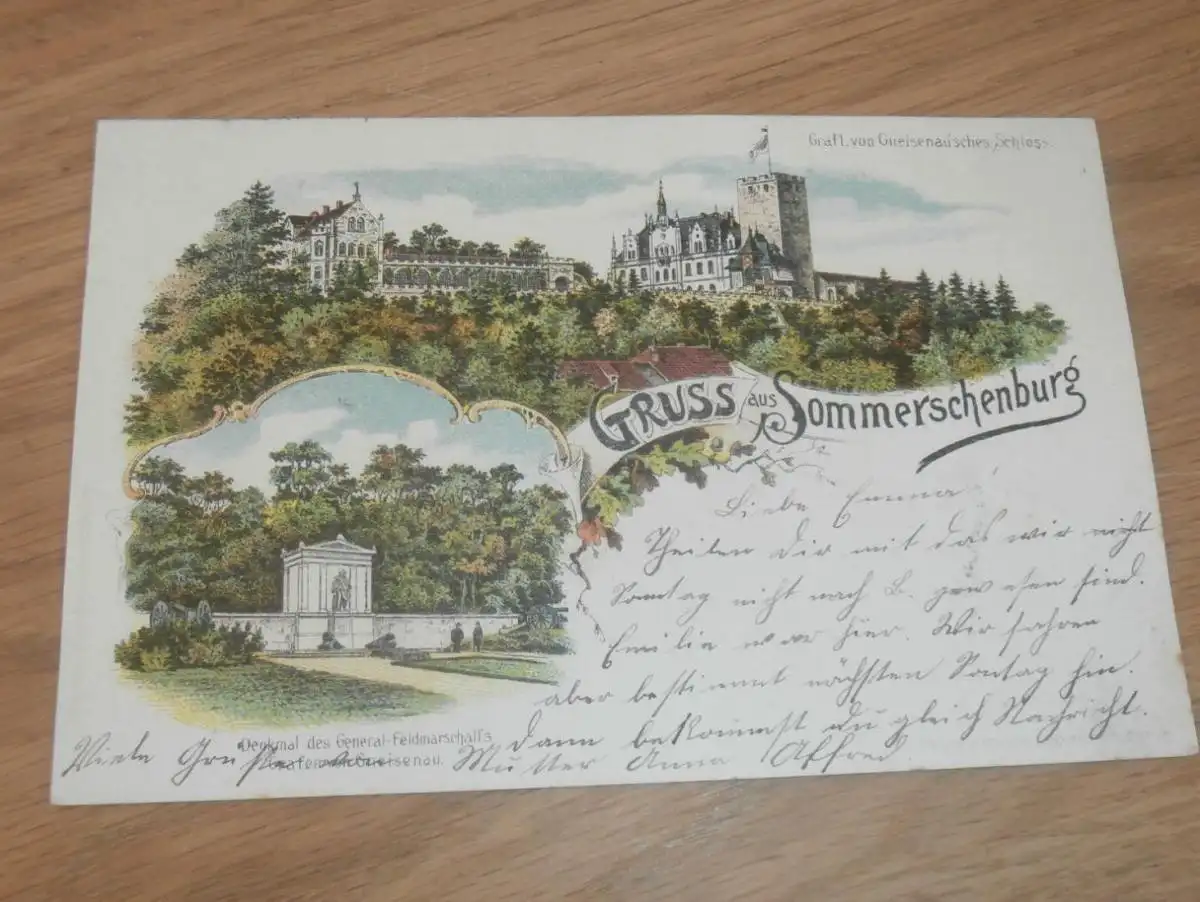 Gräfl. von Gneisenau'sches Schloss.
GRUSS aus Sommerschenburg
Liebe Emma
Theilen Dir mit das wir nicht
Sonntag nicht nach B. gewesen sind.
Emilie war hier. Wir fahren
aber bestimmt nächsten Sontag hin.
Dann bekommst du gleich Nachricht.
Viele Mutter Anna Alfred
Denkmal des General-Feldmarschall's
Grafen von Gneisenau.